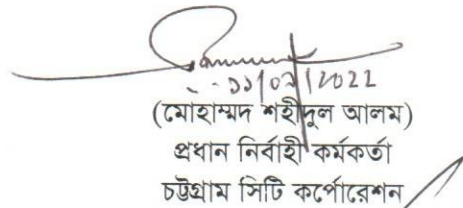 (মোহাম্মদ শহীদুল আলম)
প্রধান নির্বাহী কর্মকর্তা
চট্টগ্রাম সিটি কর্পোরেশন